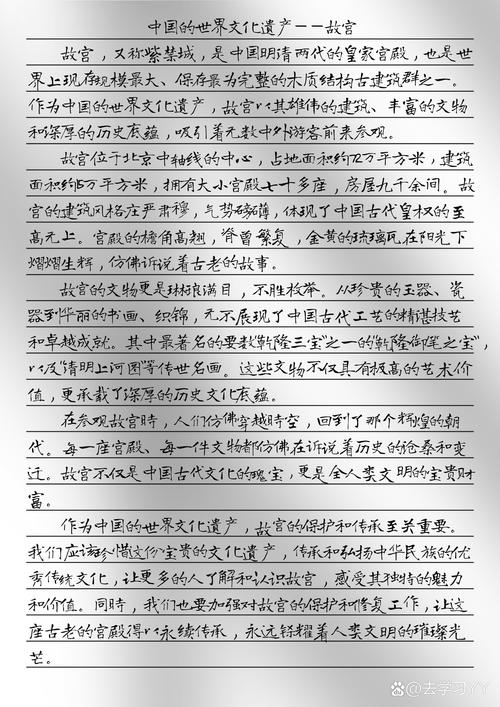 中国的世界文化遗产——故宫
故宫，又称紫禁城，是中国明清两代的皇家宫殿，也是世
界上现存规模最大、保存最为完整的木质结构古建筑群之一。
作为中国的世界文化遗产，故宫以其雄伟的建筑、丰富的文物
和深厚的历史底蕴，吸引着无数中外游客前来参观。
故宫位于北京中轴线的中心，占地面积约72万平方米，建筑
面积约15万平方米，拥有大小宫殿七十多座，房屋九千余间。故
宫的建筑风格庄严肃穆，气势磅薄，体现了中国古代皇权的至
高无上。宫殿的檐角高翘，脊兽繁复，金黄的琉璃瓦在阳光下
熠熠生辉，仿佛诉说着古老的故事。
故宫的文物更是琳琅满目，不胜枚举。从珍贵的玉器、瓷
器到华丽的书画、织锦，无不展现了中国古代工艺的精湛技艺
和卓越成就。其中最著名的要数“乾隆三宝”之一的“乾隆御笔之宝”，
以及“清明上河图”等传世名画。这些文物不仅具有极高的艺术价
值，更承载了深厚的历史文化底蕴。
在参观故宫时，人们仿佛穿越时空，回到了那个辉煌的朝
代。每一座宫殿、每一件文物都仿佛在诉说着历史的沧桑和变
迁。故宫不仅是中国古代文化的瑰宝，更是全人类文明的宝贵财
富。
作为中国的世界文化遗产，故宫的保护和传承至关重要。
我们应该珍惜这份宝贵的文化遗产，传承和弘扬中华民族的优
秀传统文化，让更多的人了解和认识故宫，感受其独特的魅力
和价值。同时，我们也要加强对故宫的保护和修复工作，让这
座古老的宫殿得以永续传承，永远铄耀着人类文明的璀璨光
芒。
@去学习丫丫